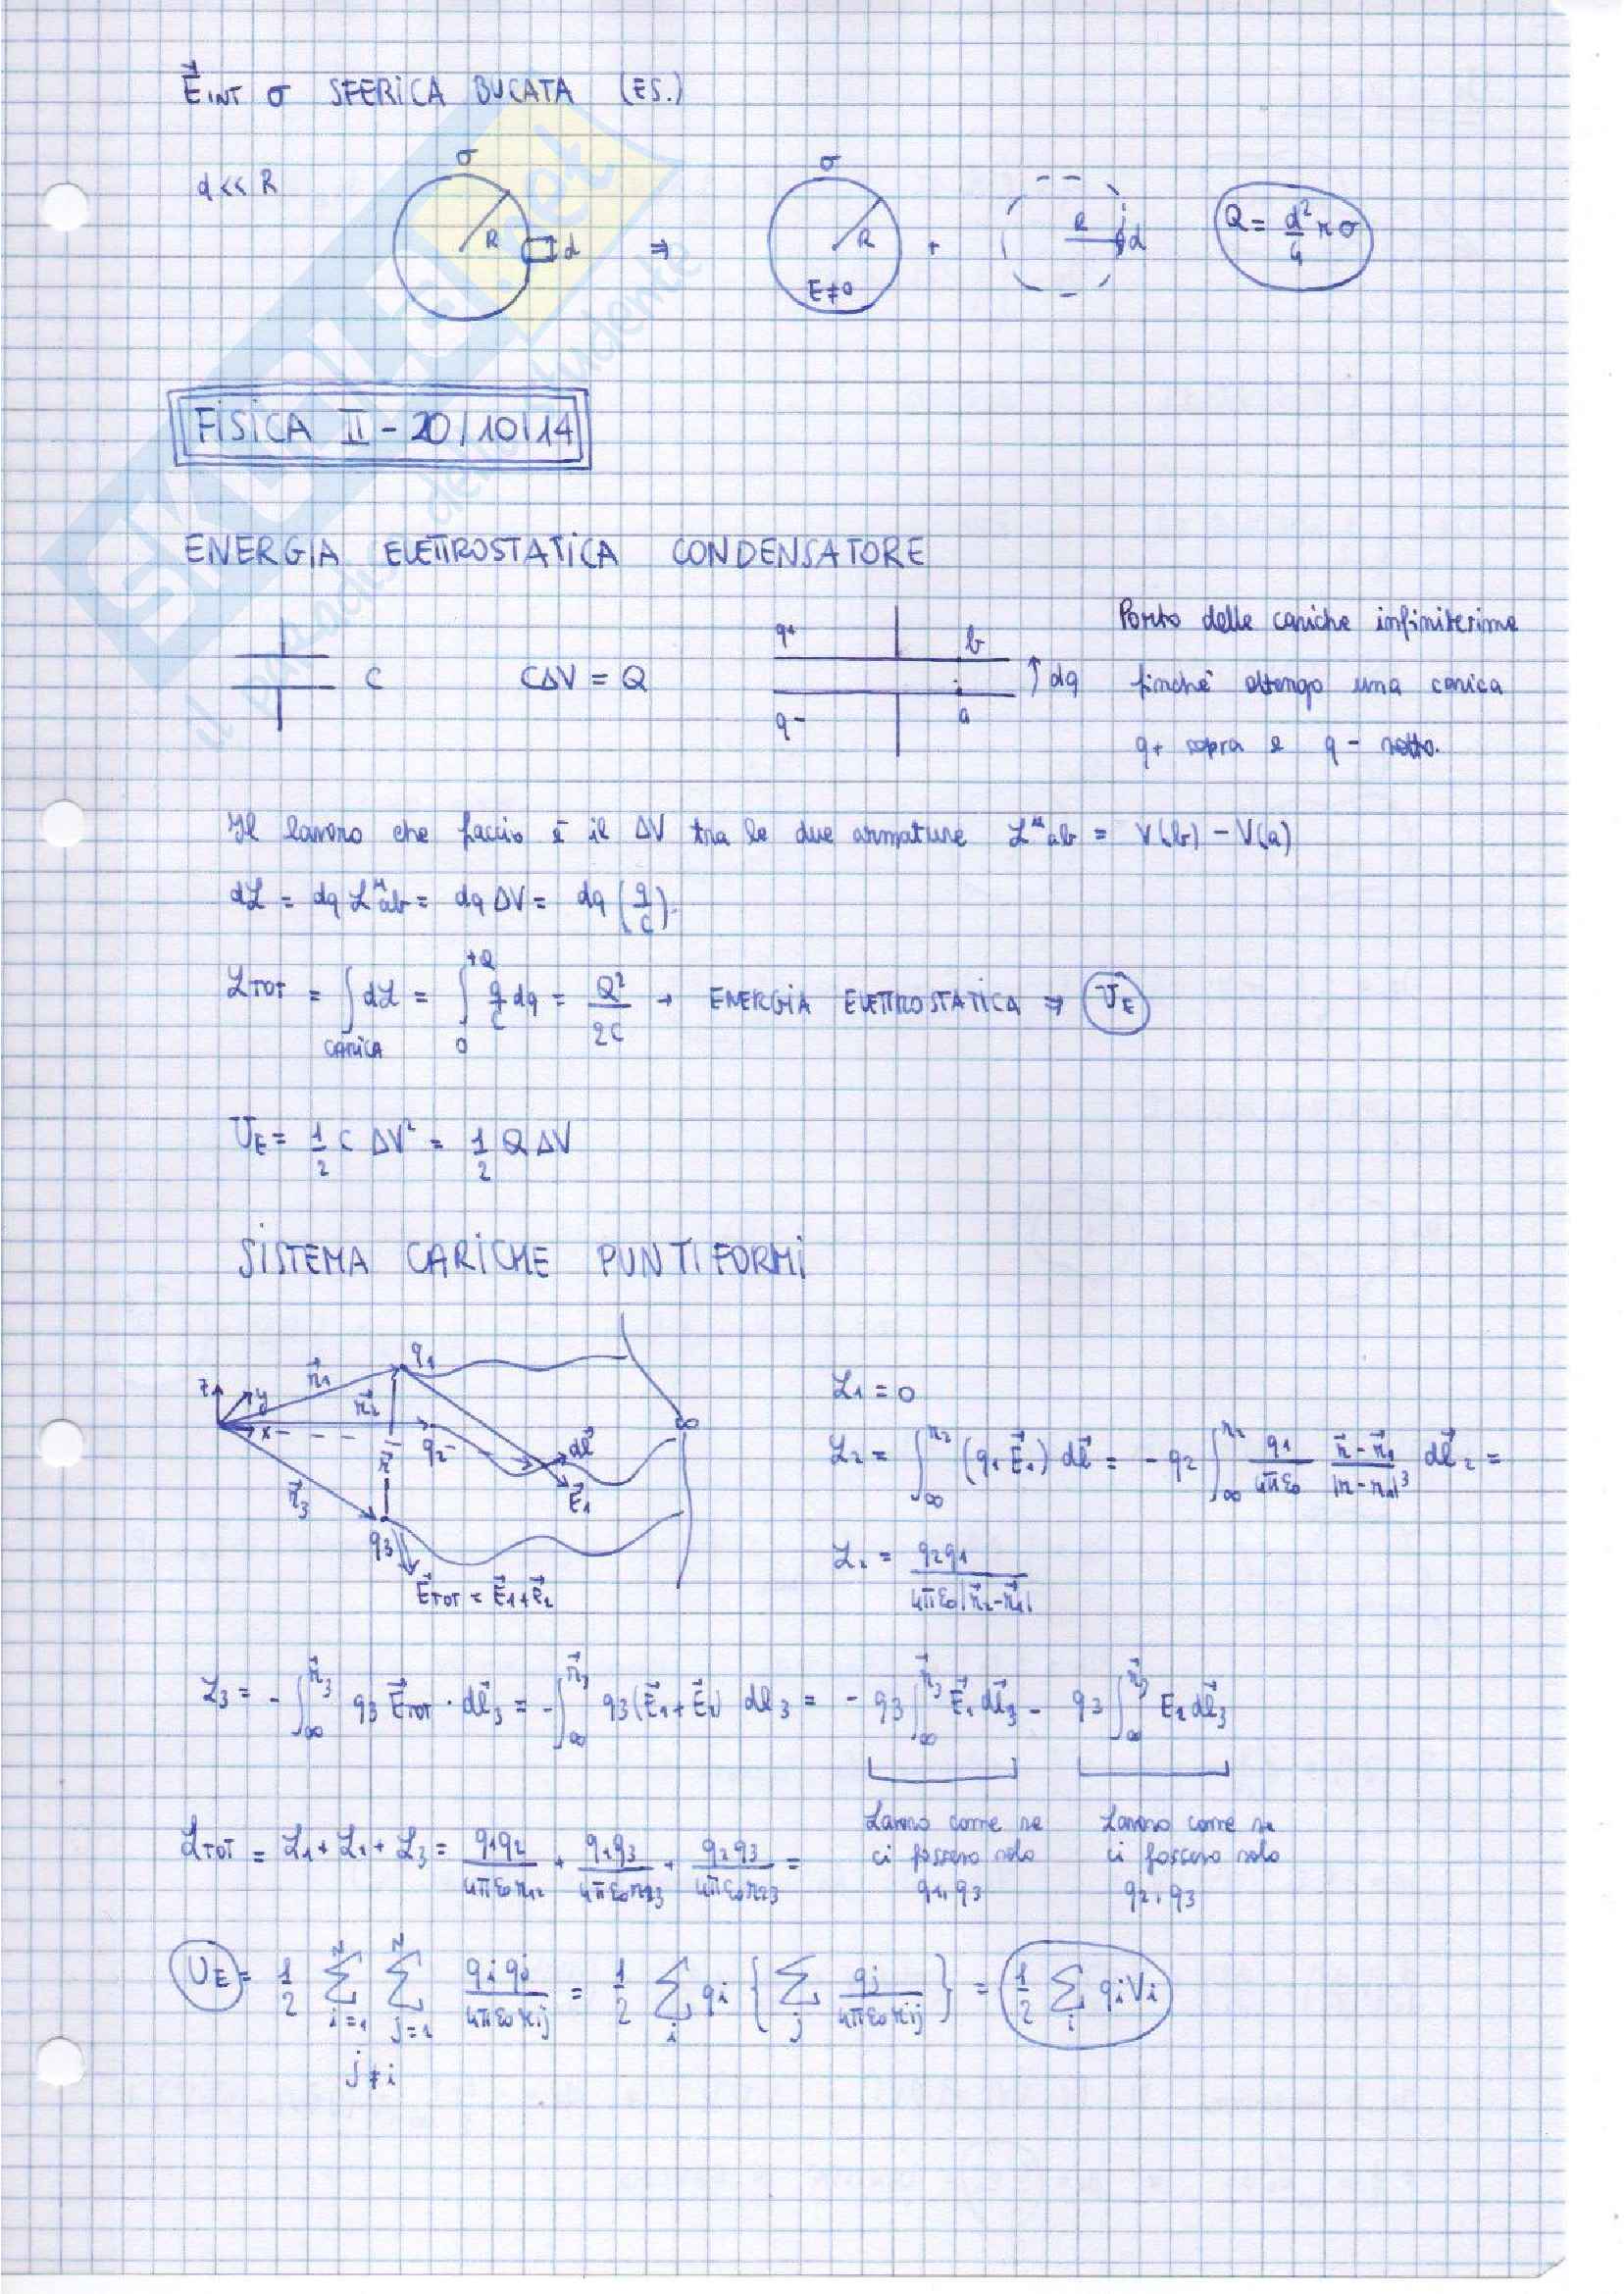 E⃗INT σ SFERICA BUCATA (ES.)
d << R
σ
R
d
⇒
σ
R
E≠0
+
R
d
Q = d²/4 π σ
FISICA II - 20/10/14
ENERGIA ELETTROSTATICA CONDENSATORE
C
CΔV = Q
q+
b
q-
a
dq
Porto delle cariche infinitesime
finché ottengo una carica
q+ sopra e q- sotto.
Il lavoro che faccio è il ΔV tra le due armature ℒᵘab = V(b) - V(a)
dℒ = dq ℒᵘab = dq ΔV = dq (q/C)
ℒTOT = ∫CARICA dℒ = ∫₀^{+Q} q/C dq = Q²/2C → ENERGIA ELETTROSTATICA ⇒ UE
UE = 1/2 C ΔV² = 1/2 Q ΔV
SISTEMA CARICHE PUNTIFORMI
z
y
x
r⃗1
r⃗2
r⃗3
r⃗
q1
q2
q3
dl⃗
E⃗1
∞
E⃗TOT = E⃗1+E⃗2
ℒ1 = 0
ℒ2 = ∫_∞^{r2} (q1 E⃗1) dl⃗ = - q2 ∫_∞^{r2} q1/4πε0 (r⃗-r⃗1)/|r-r1|³ dl⃗2 =
ℒ2 = q2q1/4πε0|r⃗2-r⃗1|
ℒ3 = - ∫_∞^{r⃗3} q3 E⃗TOT · dl⃗3 = - ∫_∞^{r⃗3} q3(E⃗1+E⃗2) dl3 = - q3 ∫_∞^{r⃗3} E⃗1 dl⃗3 - q3 ∫_∞^{r⃗3} E2 dl⃗3
Lavoro come se
ci fossero solo
q1, q3
Lavoro come se
ci fossero solo
q2, q3
ℒTOT = ℒ1 + ℒ1 + ℒ3 = q1q2/4πε0r12 + q1q3/4πε0r13 + q2q3/4πε0r23 =
UE = 1/2 Σ_{i=1}^{N} Σ_{j=1}^{N} qiqj/4πε0rij = 1/2 Σ_i qi {Σ_j qj/4πε0rij} = 1/2 Σ_i qiVi
j≠i
SKUOLA.net
il paradiso dello studente